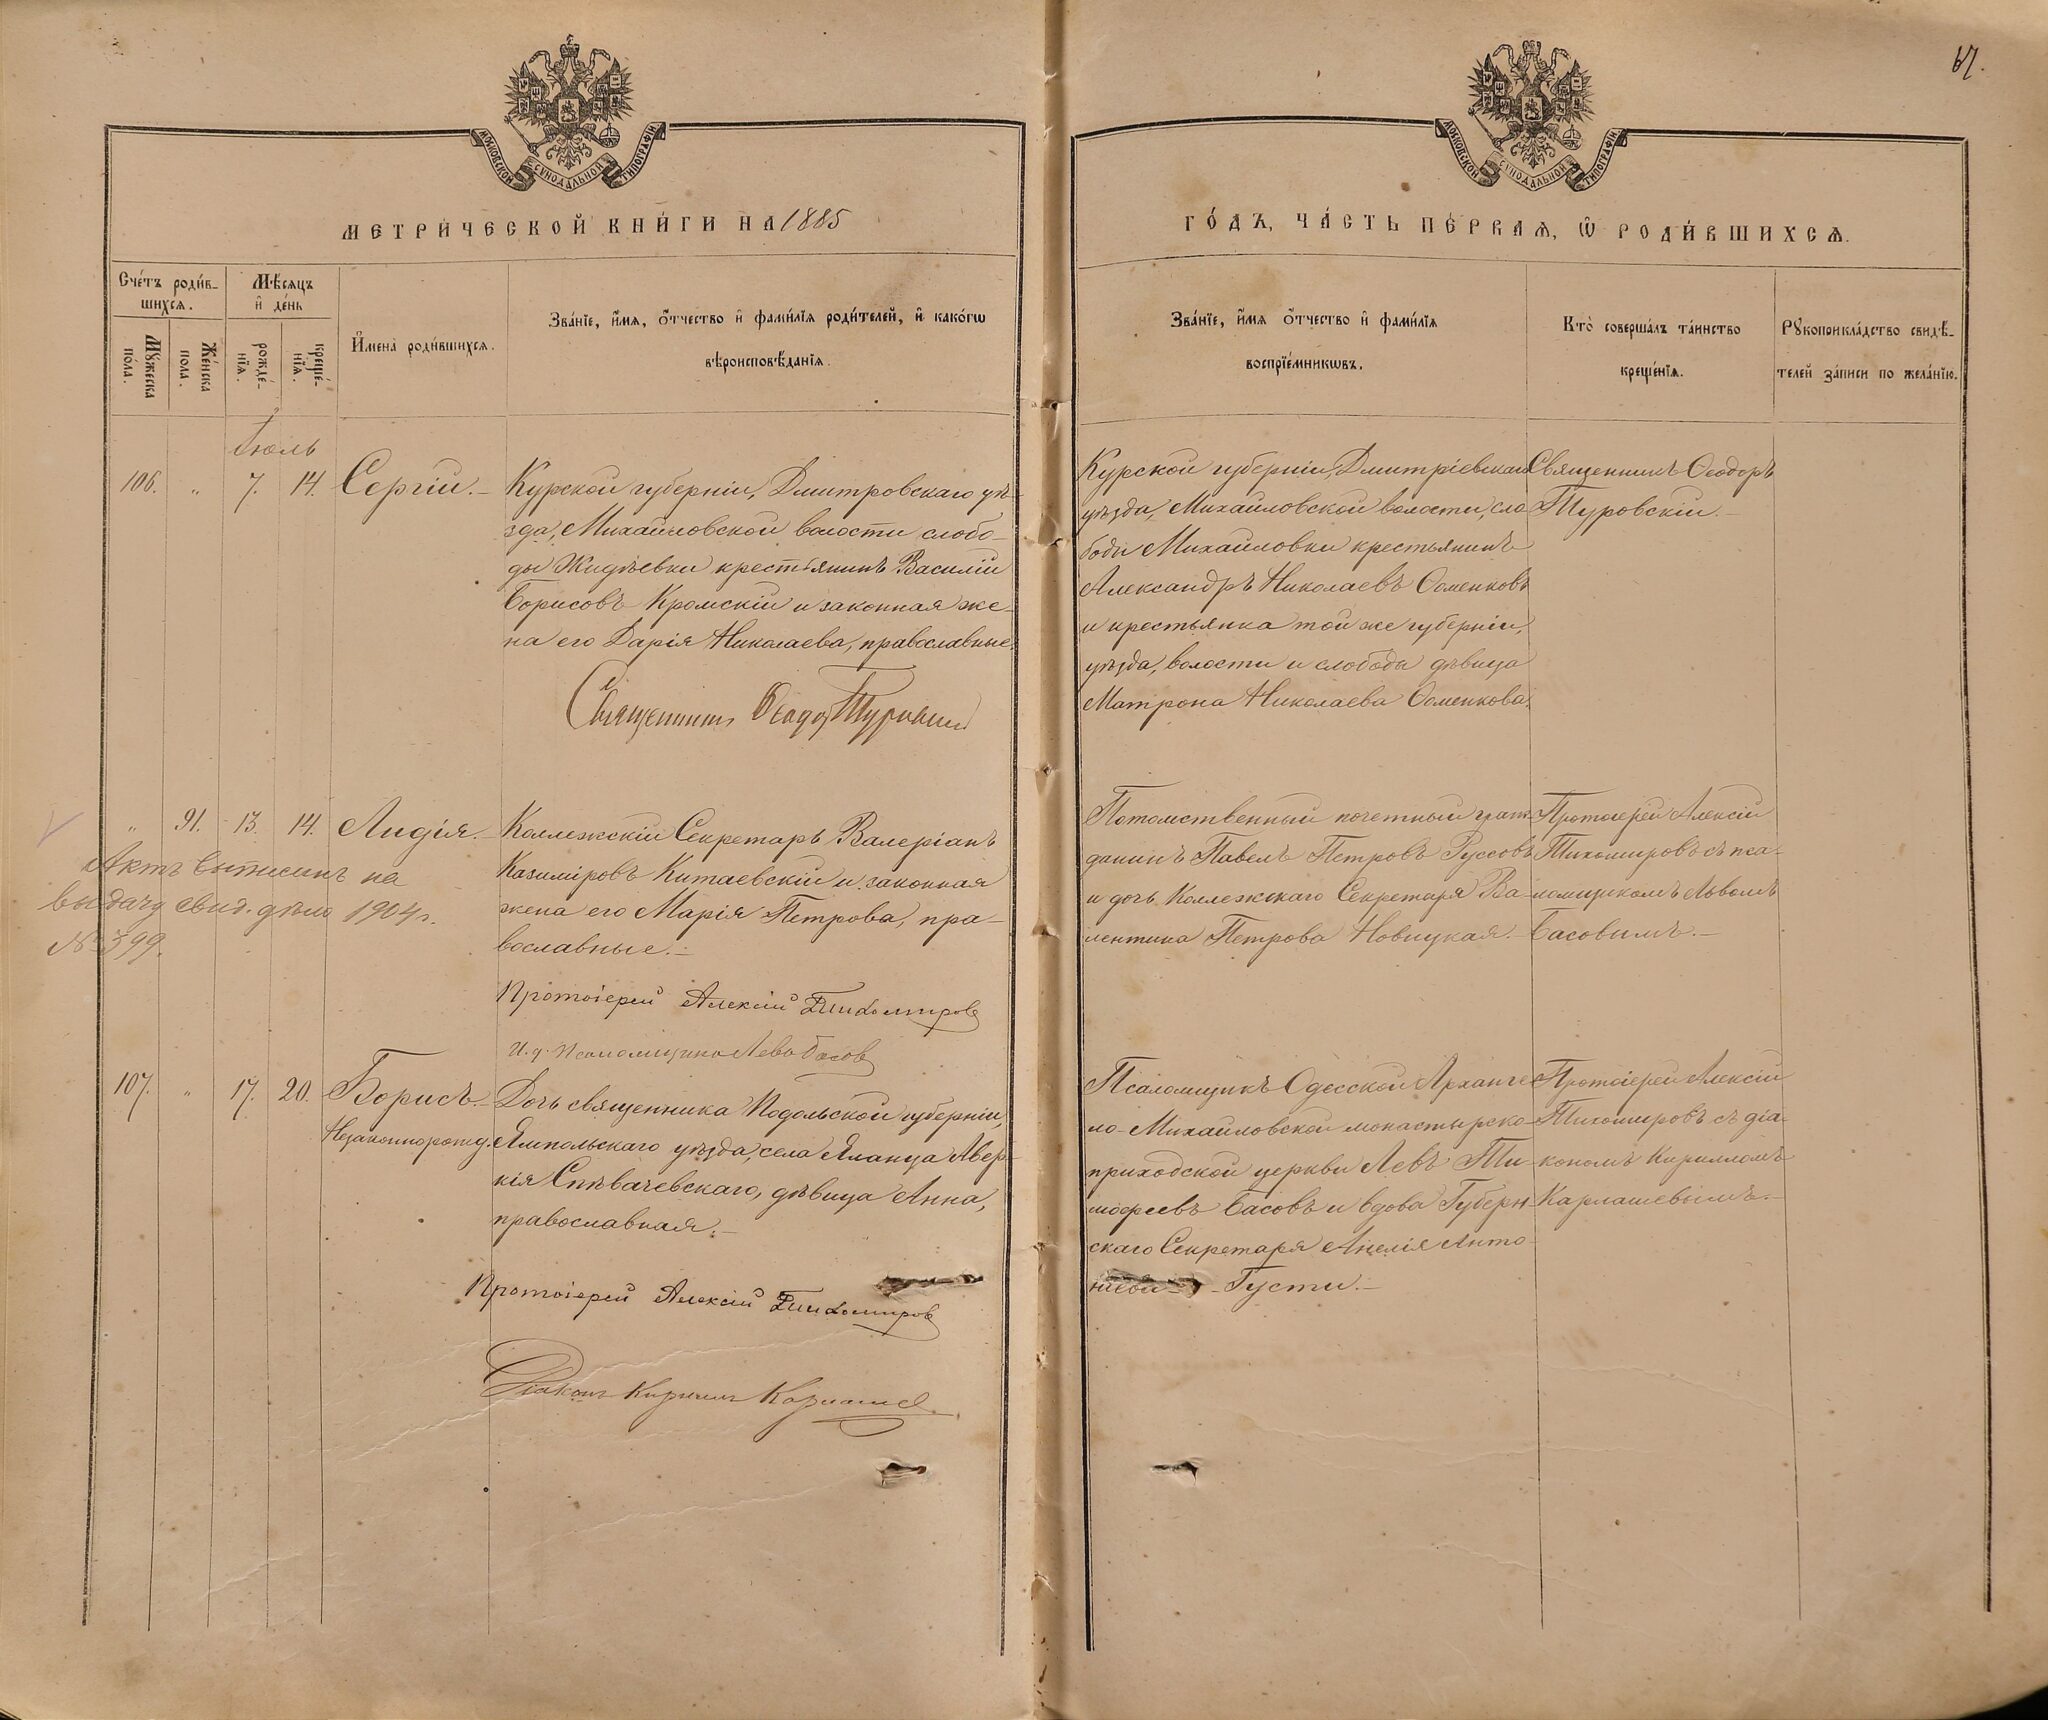 67.
МОСКОВСКОЙ СѴНОДАЛЬНОЙ ТИПОГРАФІИ
МОСКОВСКОЙ СѴНОДАЛЬНОЙ ТИПОГРАФІИ
МЕТРИ́ЧЕСКОЙ КНИ́ГИ НА 1885
ГО́ДЪ, ЧА́СТЬ ПЕ́РВАѦ, Ѽ РОДИ́ВШИХСѦ.
Сче́тъ роди́в-
шихсѧ.
Мѣ́сѧцъ
и҆ де́нь
Мꙋ́жеска
по́ла.
Же́нска
пола.
рожде́-
нїѧ.
креще́-
нїѧ.
И҆мена̀ роди́вшихсѧ.
Зва́нїе, и҆́мѧ, ѻ҆́тчество и҆ фами́лїѧ роди́телей, и҆ како́гѡ
вѣроисповѣ́данїѧ.
Зва́нїе, и҆́мѧ ѻ҆́тчество и҆ фами́лїѧ
воспрїе́мникѡвъ.
Кто̀ соверша́лъ та́инство
креще́нїѧ.
Рꙋкоприкла́дство свидѣ́-
телей за́писи по жела́нїю.
Іюль
106. „ 7. 14. Сергій.–
Курской губерніи, Дмитровскаго уѣ-
зда, Михайловской волости слобо-
ды Жидѣевки крестьянинъ Василій
Борисовъ Кромскій и законная же-
на его Дарія Николаева, православные.
Священникъ Ѳеодоръ Туровскій
Курской губерніи, Дмитріевскаго
уѣзда, Михайловской волости, сло
боды Михайловки крестьянинъ
Александръ Николаевъ Фоменковъ
и крестьянка той же губерніи,
уѣзда, волости и слободы дѣвица
Матрона Николаева Фоменкова.
Священникъ Ѳеодоръ
Туровскій.–
„ 91. 13. 14. Лидія.–
Актъ выписанъ на
выдачу свид. дѣло 1904 г.
№ 399.
Коллежскій Секретарь Валеріанъ
Казиміровъ Китаевскій и законная
жена его Марія Петрова, пра-
вославные.–
Протоіерей Алексій Тихомировъ
И. д. Псаломщика Левъ Басовъ
Потомственный почетный граж-
данинъ Павелъ Петровъ Руссовъ
и дочь Коллежскаго Секретаря Ва-
лентина Петрова Новицкая.–
Протоіерей Алексій
Тихомировъ съ пса-
ломщикомъ Львомъ
Басовымъ.–
107. „ 17. 20. Борисъ.–
Незаконнорожд.
Дочь священника Подольской губерніи,
Ямпольскаго уѣзда, села Яланца Авер-
кія Спѣвачевскаго, дѣвица Анна,
православная.–
Протоіерей Алексій Тихомировъ
Діаконъ Кириллъ Карпашев
Псаломщикъ Одесской Арханге
ло-Михайловской монастырско-
приходской церкви Левъ Ти-
мофеевъ Басовъ и вдова Губерн-
скаго Секретаря Анелія Анто-
Густи.–
Протоіерей Алексій
Тихомировъ съ діа-
кономъ Кирилломъ
Карпашевымъ.–